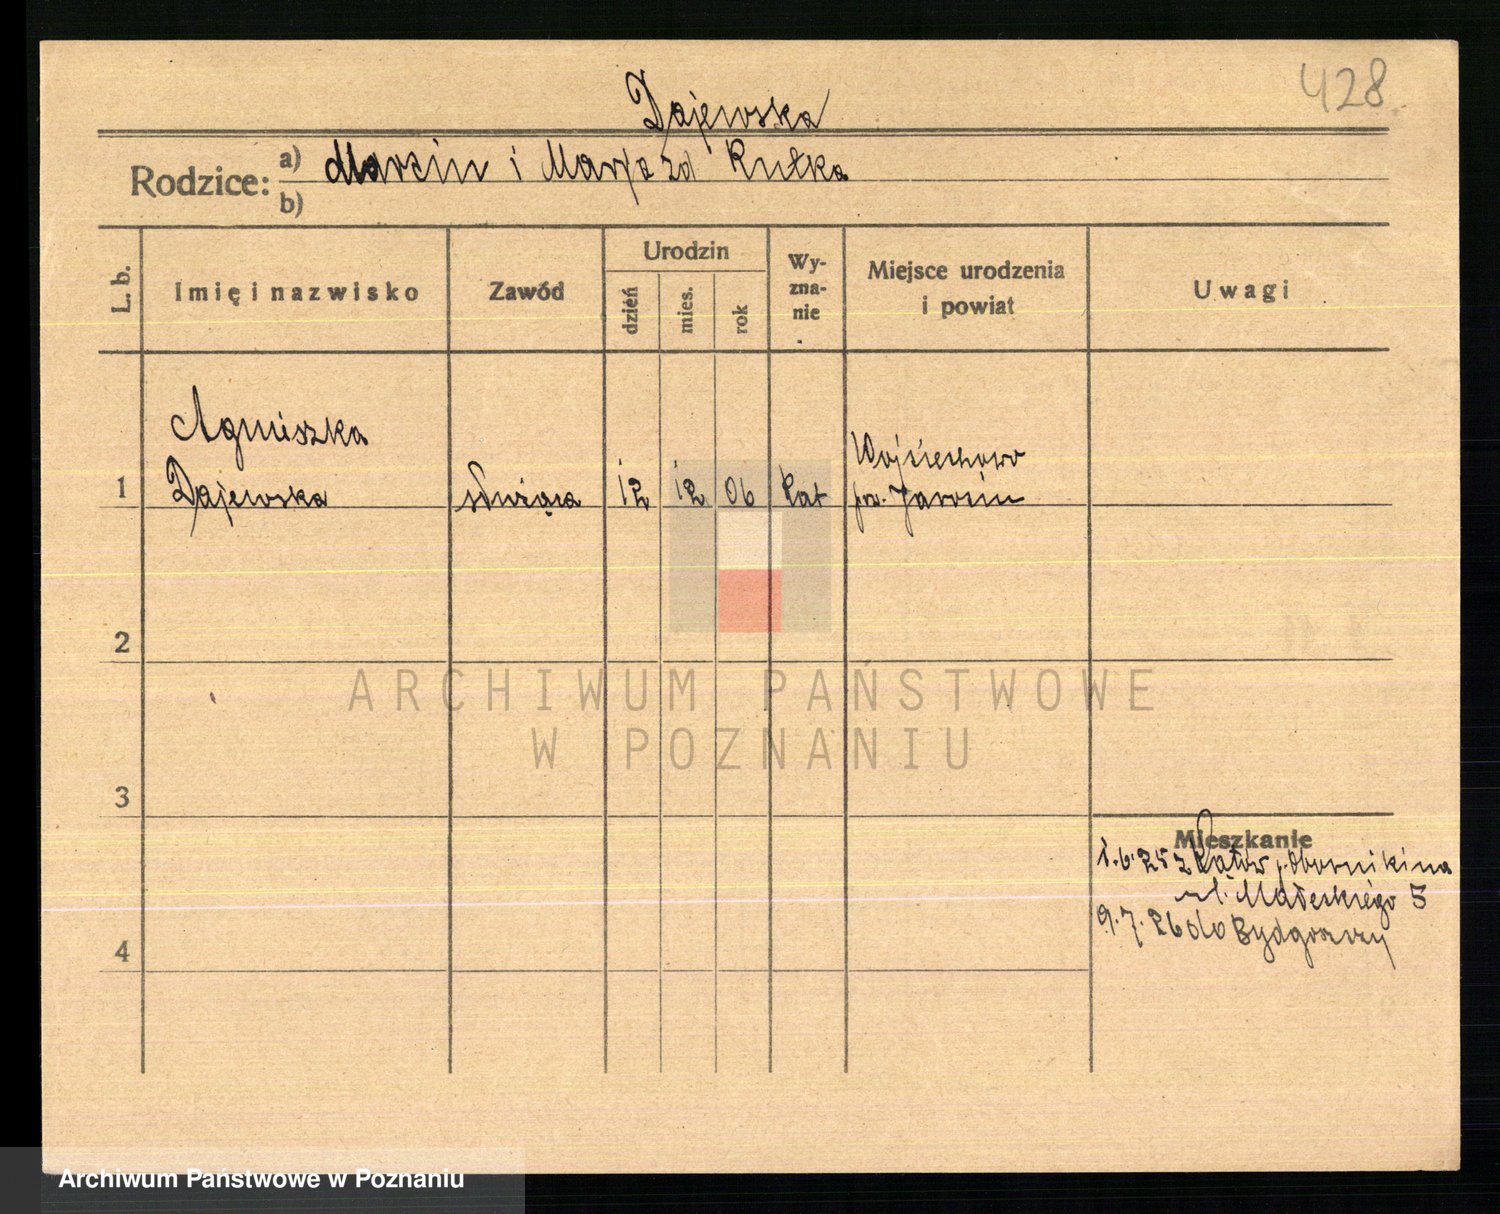 428
Dajewska
Rodzice: a) Marcin i Marja zd Kułka
b)
L. b.
Imię i nazwisko
Zawód
Urodzin
dzień
mies.
rok
Wy-
zna-
nie
Miejsce urodzenia
i powiat
Uwagi
1
Agnieszka
Dajewska
służąca
12
12
06
kat
Wojciechowo
pow. Jarocin
2
3
4
Mieszkanie
1.6.25 z p. Oborniki na
ul. Małeckiego 5
9.7.26 do Bydgoszczy
ARCHIWUM PAŃSTWOWE
W POZNANIU
Archiwum Państwowe w Poznaniu